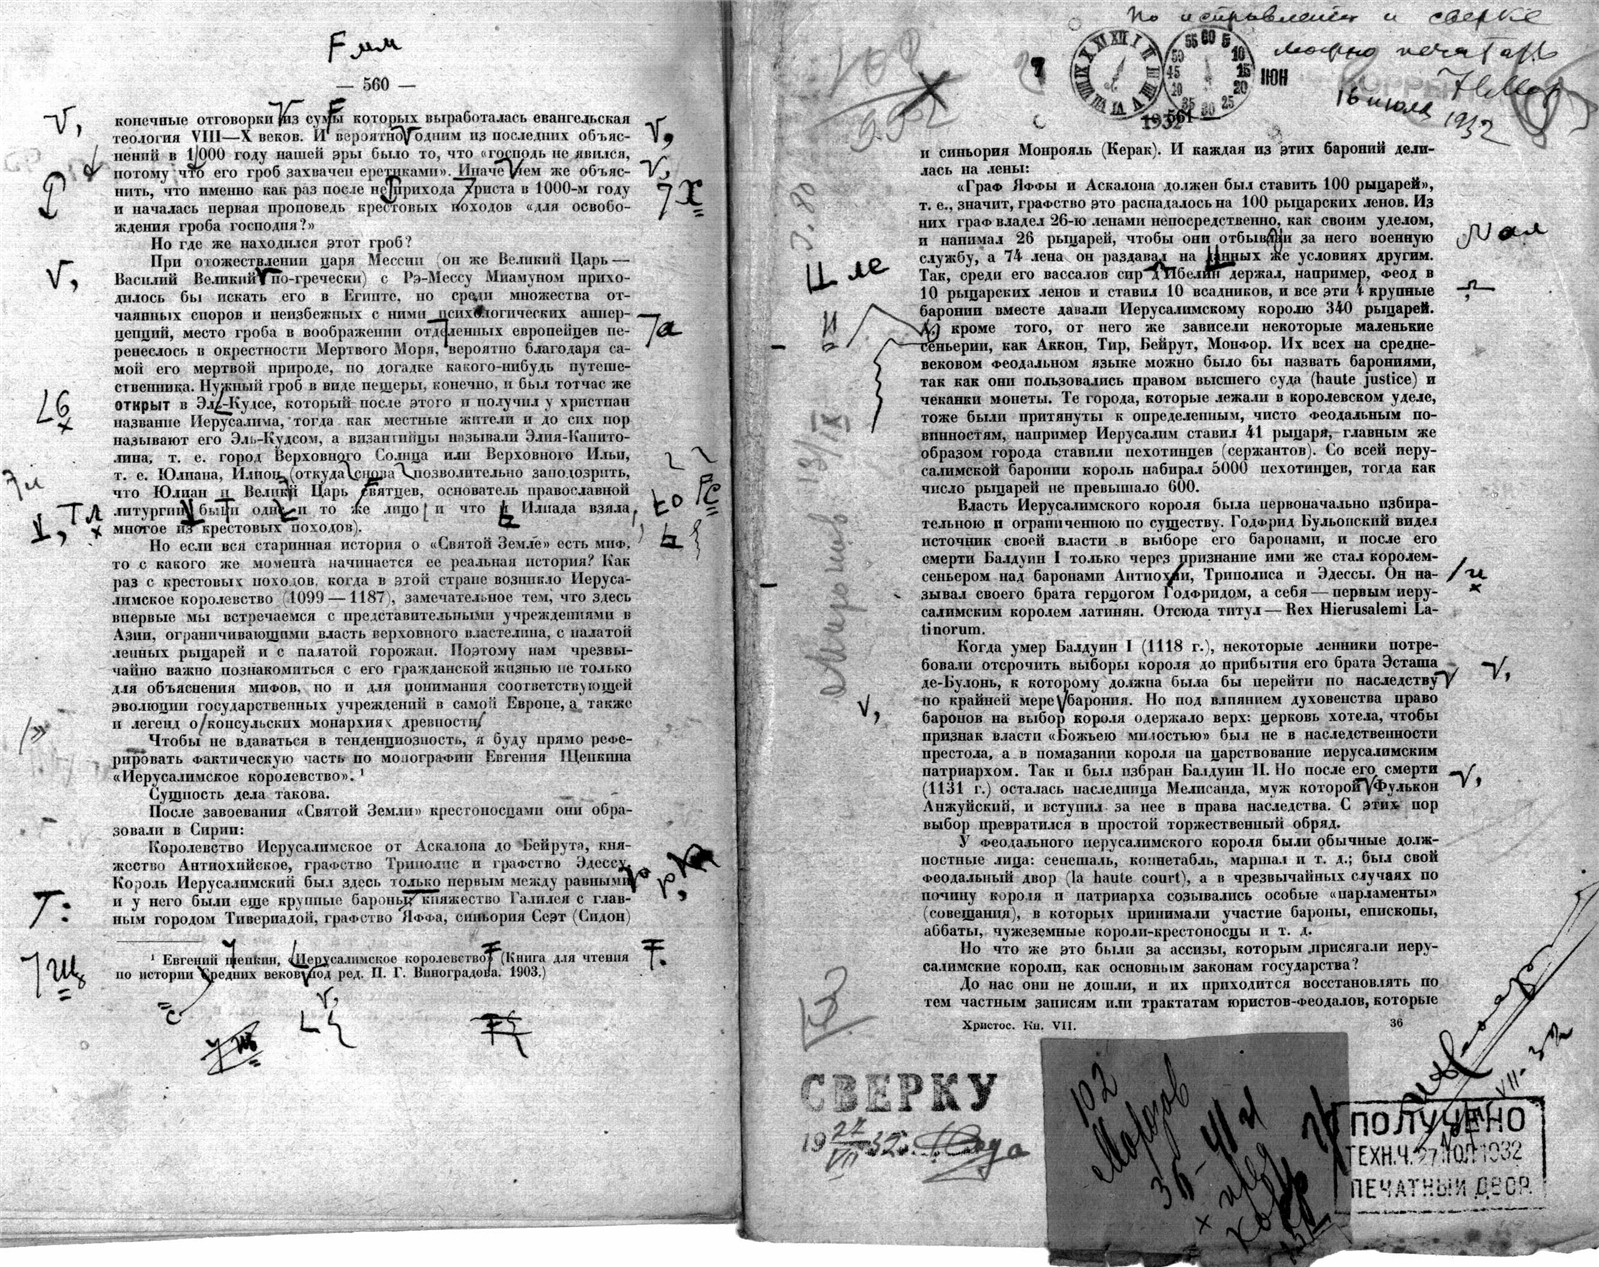 — 560 —
конечные отговорки из сумы которых выработалась евангельская
теология VIII—X веков. И вероятно одним из последних объяс-
нений в 1000 году нашей эры было то, что «господь не явился,
потому что его гроб захвачен еретиками». Иначе чем же объяс-
нить, что именно как раз после неприхода христа в 1000-м году
и началась первая проповедь крестовых походов «для освобо-
ждения гроба господня?»
Но где же находился этот гроб?
При отожествлении царя Мессии (он же Великий Царь —
Василий Великий по-гречески) с Рэ-Мессу Миамуном прихо-
дилось бы искать его в Египте, но среди множества от-
чаянных споров и неизбежных с ними психологических аппер-
цепций, место гроба в воображении отделенных европейцев пе-
ренеслось в окрестности Мертвого Моря, вероятно благодаря са-
мой его мертвой природе, по догадке какого-нибудь путеше-
ственника. Нужный гроб в виде пещеры, конечно, и был тотчас же
открыт в Эль-Кудсе, который после этого и получил у христиан
название Иерусалима, тогда как местные жители и до сих пор
называют его Эль-Кудсом, а византийцы называли Элия-Капито-
лина, т. е. город Верховного Солнца или Верховного Ильи,
т. е. Юлиана, Илион (откуда снова позволительно заподозрить,
что Юлиан и Великий Царь святцев, основатель православной
литургии были одно и то же лицо и что и Илиада взяла
многое из крестовых походов).
Но если вся старинная история о «Святой Земле» есть миф,
то с какого же момента начинается ее реальная история? Как
раз с крестовых походов, когда в этой стране возникло Иеруса-
лимское королевство (1099 — 1187), замечательное тем, что здесь
впервые мы встречаемся с представительными учреждениями в
Азии, ограничивающими власть верховного властелина, с палатой
ленных рыцарей и с палатой горожан. Поэтому нам чрезвы-
чайно важно познакомиться с его гражданской жизнью не только
для объяснения мифов, но и для понимания соответствующей
эволюции государственных учреждений в самой Европе, а также
и легенд о консульских монархиях древности
Чтобы не вдаваться в тенденциозность, я буду прямо рефе-
рировать фактическую часть по монографии Евгения Щепкина
«Иерусалимское королевство». ¹
Сущность дела такова.
После завоевания «Святой Земли» крестоносцами они обра-
зовали в Сирии:
Королевство Иерусалимское от Аскалона до Бейрута, кня-
жество Антиохийское, графство Триполис и графство Эдессу.
Король Иерусалимский был здесь только первым между равными
и у него были еще крупные бароны княжество Галилея с глав-
ным городом Тивериадой, графство Яффа, синьория Сеэт (Сидон)
¹ Евгений щепкин, «Иерусалимское королевство» (Книга для чтения
по истории Средних веков под ред. П. Г. Виноградова. 1903.)
По исправлении и сверке
можно печатать
16 июля 1932
ИЮН
1932
561
и синьория Монрояль (Керак). И каждая из этих бароний дели-
лась на лены:
«Граф Яффы и Аскалона должен был ставить 100 рыцарей»,
т. е., значит, графство это распадалось на 100 рыцарских ленов. Из
них граф владел 26-ю ленами непосредственно, как своим уделом,
и нанимал 26 рыцарей, чтобы они отбывали за него военную
службу, а 74 лена он раздавал на данных же условиях другим.
Так, среди его вассалов сир д'Ибелин держал, например, феод в
10 рыцарских ленов и ставил 10 всадников, и все эти 4 крупные
баронии вместе давали Иерусалимскому королю 340 рыцарей.
А кроме того, от него же зависели некоторые маленькие
сеньерии, как Аккон, Тир, Бейрут, Монфор. Их всех на средне-
вековом феодальном языке можно было бы назвать барониями,
так как они пользовались правом высшего суда (haute justice) и
чеканки монеты. Те города, которые лежали в королевском уделе,
тоже были притянуты к определенным, чисто феодальным по-
винностям, например Иерусалим ставил 41 рыцаря, главным же
образом города ставили пехотинцев (сержантов). Со всей иеру-
салимской баронии король набирал 5000 пехотинцев, тогда как
число рыцарей не превышало 600.
Власть Иерусалимского короля была первоначально избира-
тельною и ограниченною по существу. Годфрид Бульонский видел
источник своей власти в выборе его баронами, и после его
смерти Балдуин I только через признание ими же стал королем-
сеньером над баронами Антиохии, Триполиса и Эдессы. Он на-
зывал своего брата герцогом Годфридом, а себя — первым иеру-
салимским королем латинян. Отсюда титул — Rex Hierusalemi La-
tinorum.
Когда умер Балдуин I (1118 г.), некоторые ленники потре-
бовали отсрочить выборы короля до прибытия его брата Эсташа
де-Булонь, к которому должна была бы перейти по наследству
по крайней мере барония. Но под влиянием духовенства право
баронов на выбор короля одержало верх: церковь хотела, чтобы
признак власти «Божьею милостью» был не в наследственности
престола, а в помазании короля на царствование иерусалимским
патриархом. Так и был избран Балдуин II. Но после его смерти
(1131 г.) осталась наследница Мелисанда, муж которой Фулькон
Анжуйский, и вступил за нее в права наследства. С этих пор
выбор превратился в простой торжественный обряд.
У Феодального иерусалимского короля были обычные долж-
ностные лица: сенешаль, коннетабль, маршал и т. д.; был свой
феодальный двор (la haute court), а в чрезвычайных случаях по
почину короля и патриарха созывались особые «парламенты»
(совещания), в которых принимали участие бароны, епископы,
аббаты, чужеземные короли-крестоносцы и т. д.
Но что же это были за ассизы, которым присягали иеру-
салимские короли, как основным законам государства?
До нас они не дошли, и их приходится восстановлять по
тем частным записям или трактатам юристов-феодалов, которые
Христос. Кн. VII. 36
СВЕРКУ
102
Морозов
ПОЛУЧЕНО
ТЕХН.Ч. 27 ИЮЛ 1932
ПЕЧАТНЫЙ ДВОР